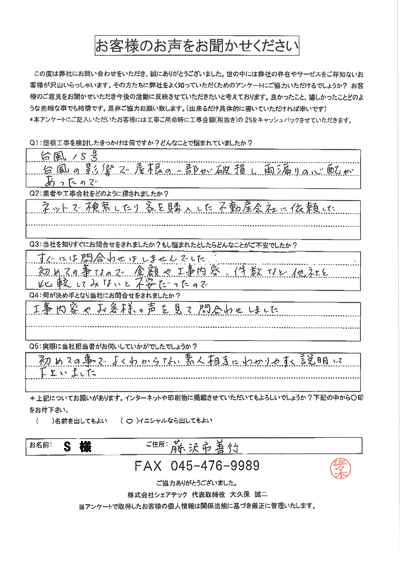 お客様のお声をお聞かせください
この度は弊社にお問い合わせをいただき、誠にありがとうございました。世の中には弊社の存在やサービスをご存知ないお
客様が沢山いらっしゃいます。その方たちに弊社をよく知っていただくためのアンケートにご協力いただけるでしょうか? お客
様のご意見をお聞かせいただき今後の活動に反映させていただきたいと考えております。良かったこと、嬉しかったことどのよ
うな些細な事でも結構です。是非ご協力お願い致します。(出来るだけ具体的に書いていただければ幸いです)
*本アンケートにご記入いただいたお客様には工事ご用命時に工事金額(税抜き)の2%をキャッシュバックさせていただきます。
Q1:屋根工事を検討したきっかけは何ですか? どんなことで悩まれていましたか?
台風15号
台風の影響で屋根の一部が破損し雨漏りの心配が
あったので
Q2:業者や工事会社をどのように探されましたか?
ネットで検索したり家を購入した不動産会社に依頼した
Q3:当社を知りすぐにお問合せをされましたか?もし悩まれたとしたらどんなことがご不安でしたか?
すぐには問合わせはしませんでした
初めての事なので金額や工事内容・件数など他社と
比較してみないと不安だったので
Q4:何が決め手となり当社にお問合せをされましたか?
工事内容やお客様の声を見て問合わせしました
Q5:実際に当社担当者がお伺いしていかがでしたでしょうか?
初めての事でよくわからない素人相手にわかりやすく説明して
下さいました
*上記についてお願いがあります。インターネットや印刷物に掲載させていただいてもよろしいでしょうか? 下記の中から〇印
をお付け下さい。
( )名前を出してもよい (〇)イニシャルなら出してもよい
お名前: S 様 ご住所: 藤沢市善行
FAX 045-476-9989
ご協力ありがとうございました。
株式会社シェアテック 代表取締役 大久保 誠二
当アンケートで取得したお客様の個人情報は関係法規に基づき厳正に管理いたします。